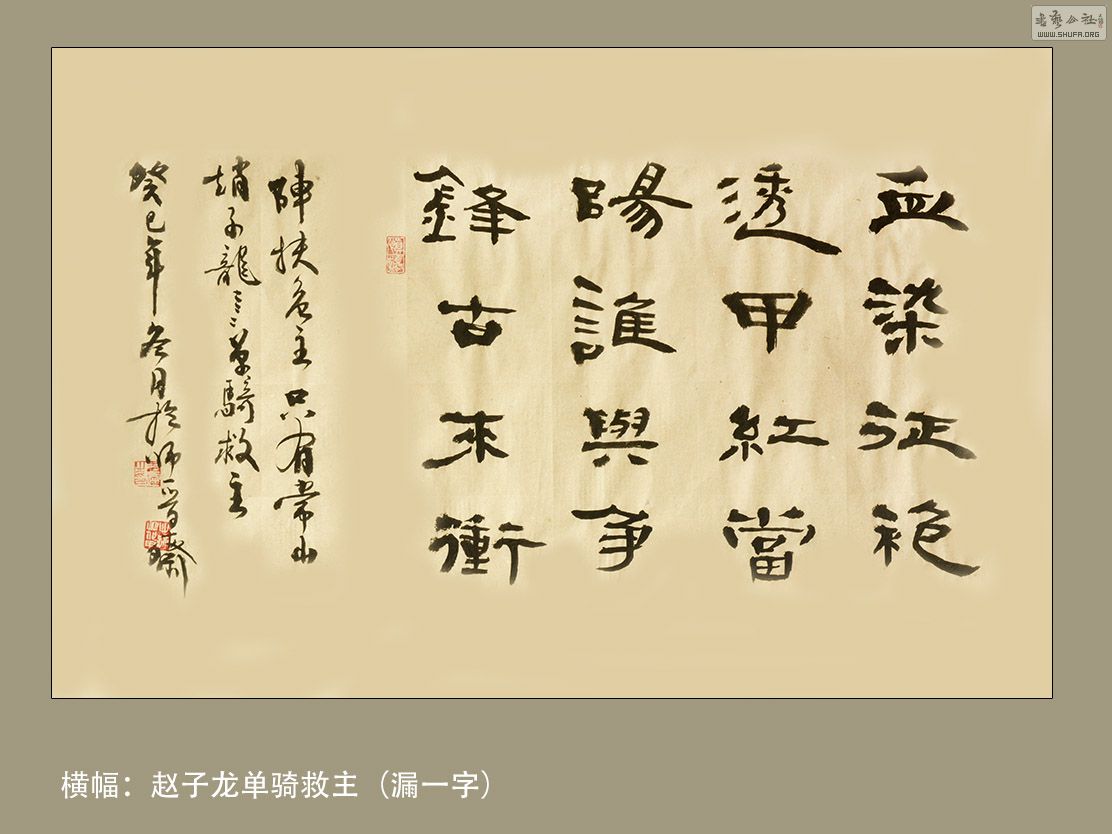 書藝公社
WWW.SHUFA.ORG
血染征袍
透甲紅當
陽誰與争
鋒古來衝
陣扶危主只有常山
趙子龍單騎救主
癸巳年冬月於師晉齋
横幅：赵子龙单骑救主（漏一字）